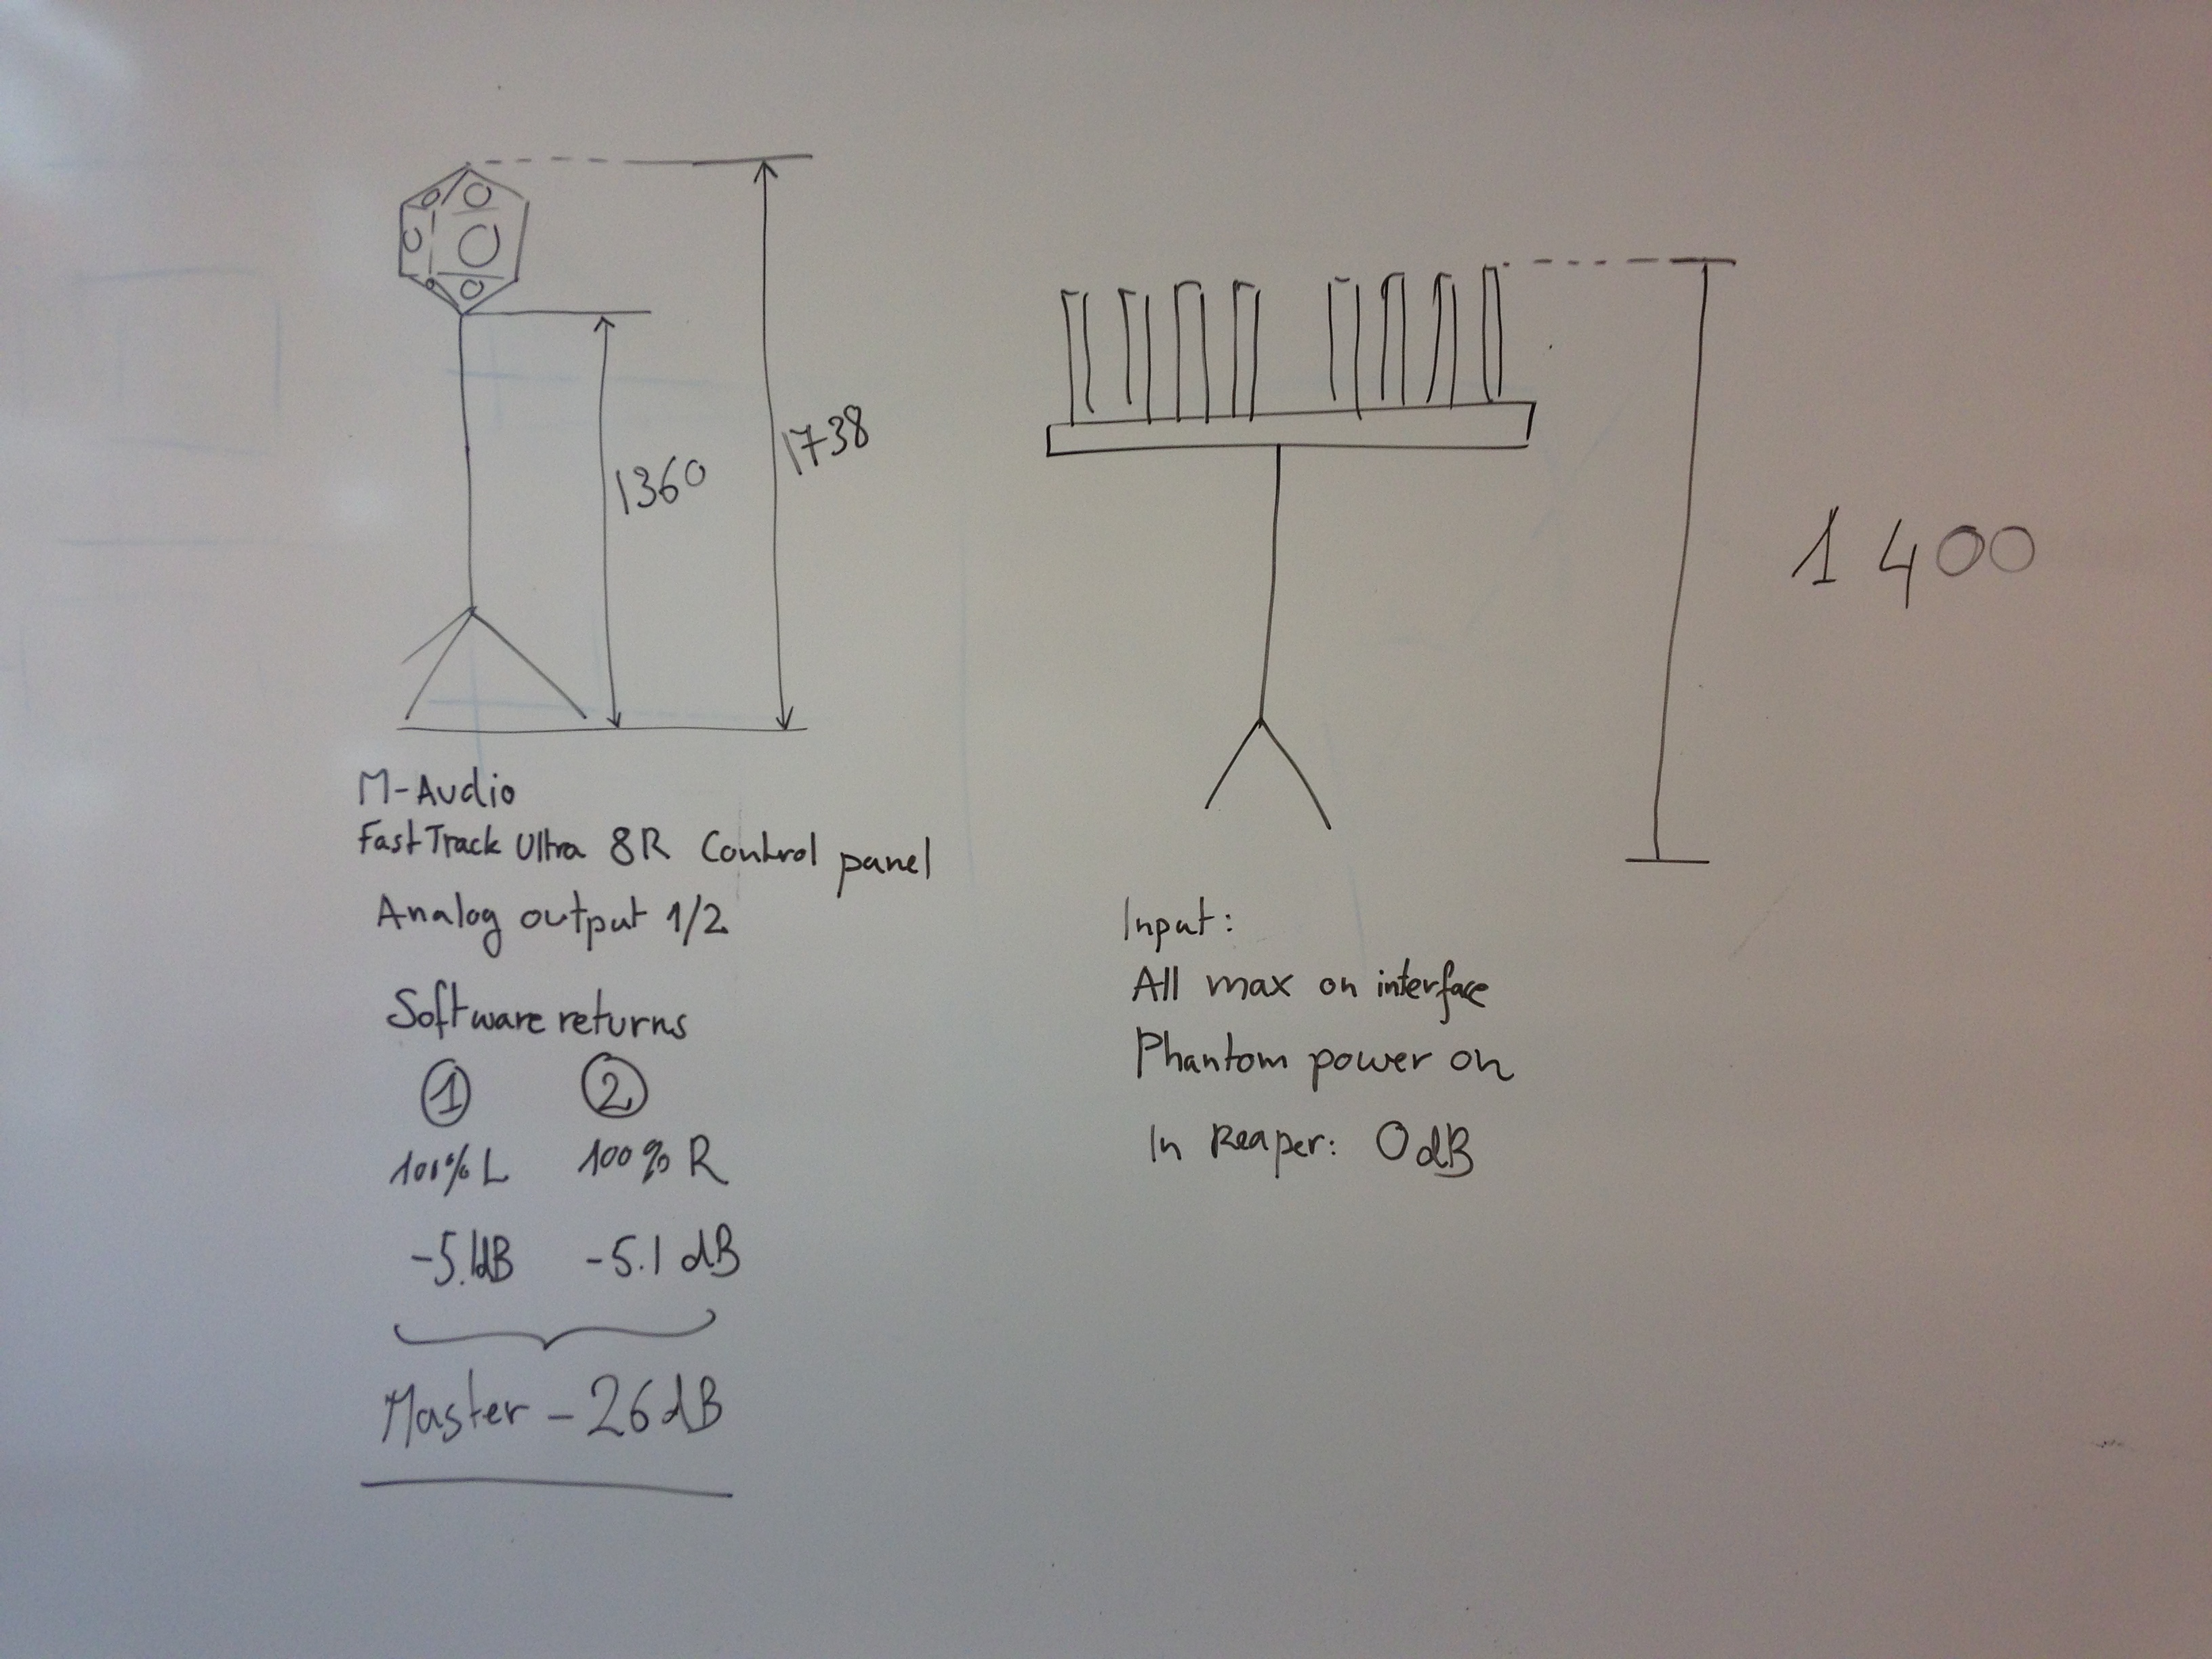 1738
1360
1400
M-Audio
Fast Track Ultra 8R Control panel
Analog output 1/2
Software returns
1 2
100% L 100% R
-5.1dB -5.1 dB
Master - 26 dB
Input:
All max on interface
Phantom power on
In Reaper: 0dB